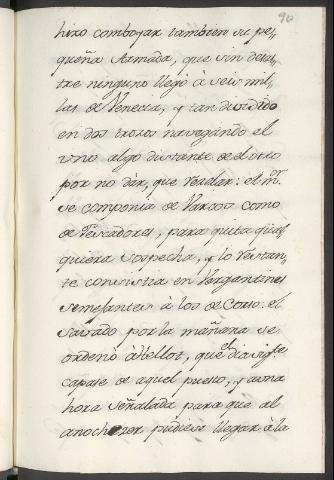 90
hizo comboyar tambien su pe„
queña Armada, que sin desas„
tre ninguno llegò à seis mil„
las de Venecia, y tan dividido
en dos trozos navegando el
uno algo distante de el otro
por no dàr, que rezelar: el m.or
se componia de Varcos como
de Pescadores, para quitar qual„
quiera sospecha, y lo restan„
te consistia en Vergantines
semejantes à los de Corso: el
Savado por la mañana se
ordenò à Hellot, que el dia sig.te
capase de aquel puesto, y a una
hora señalada para que al
anochezer pudiese llegar à la